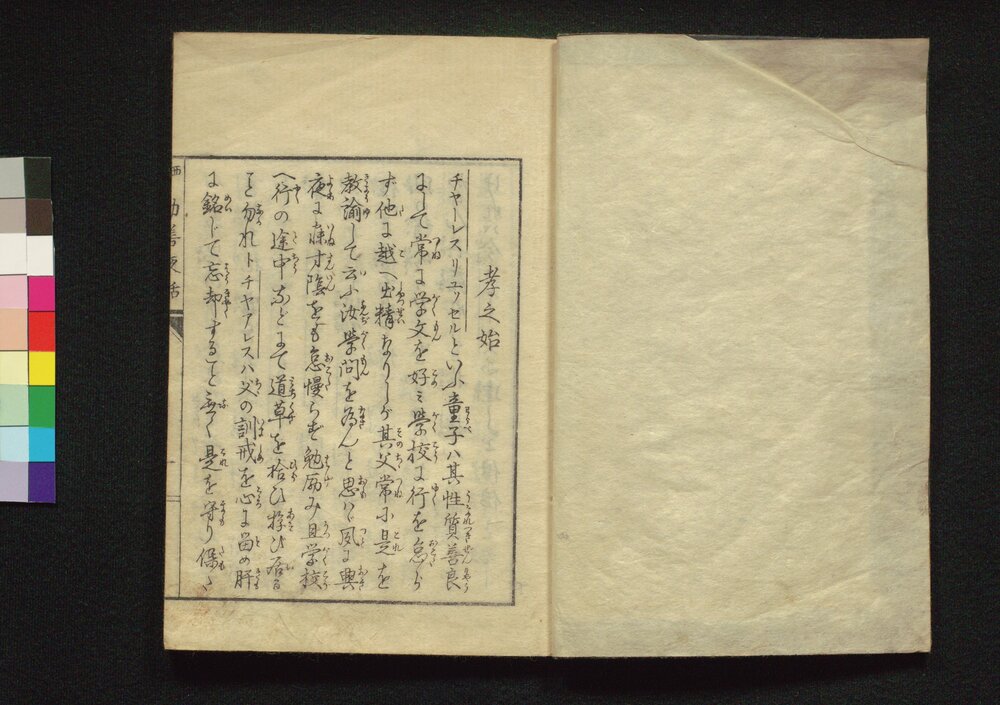 孝之始
チャーレスリユッセルといふ童子ハ其性質善良
にして常に学文を好ミ学校に行を怠ら
ず他に越へ出精なりしが其父常に是を
教諭して云ふ汝学問を為んと思はゞ夙に興
夜に寐寸陰をも怠慢らず勉励み且学校
へ行の途中などにて道草を拾ひ遊び居る
こと勿れトチヤアレスハ父の訓戒を心に留め肝
に銘じて忘却すること無く是を守り保ち
勧善夜話